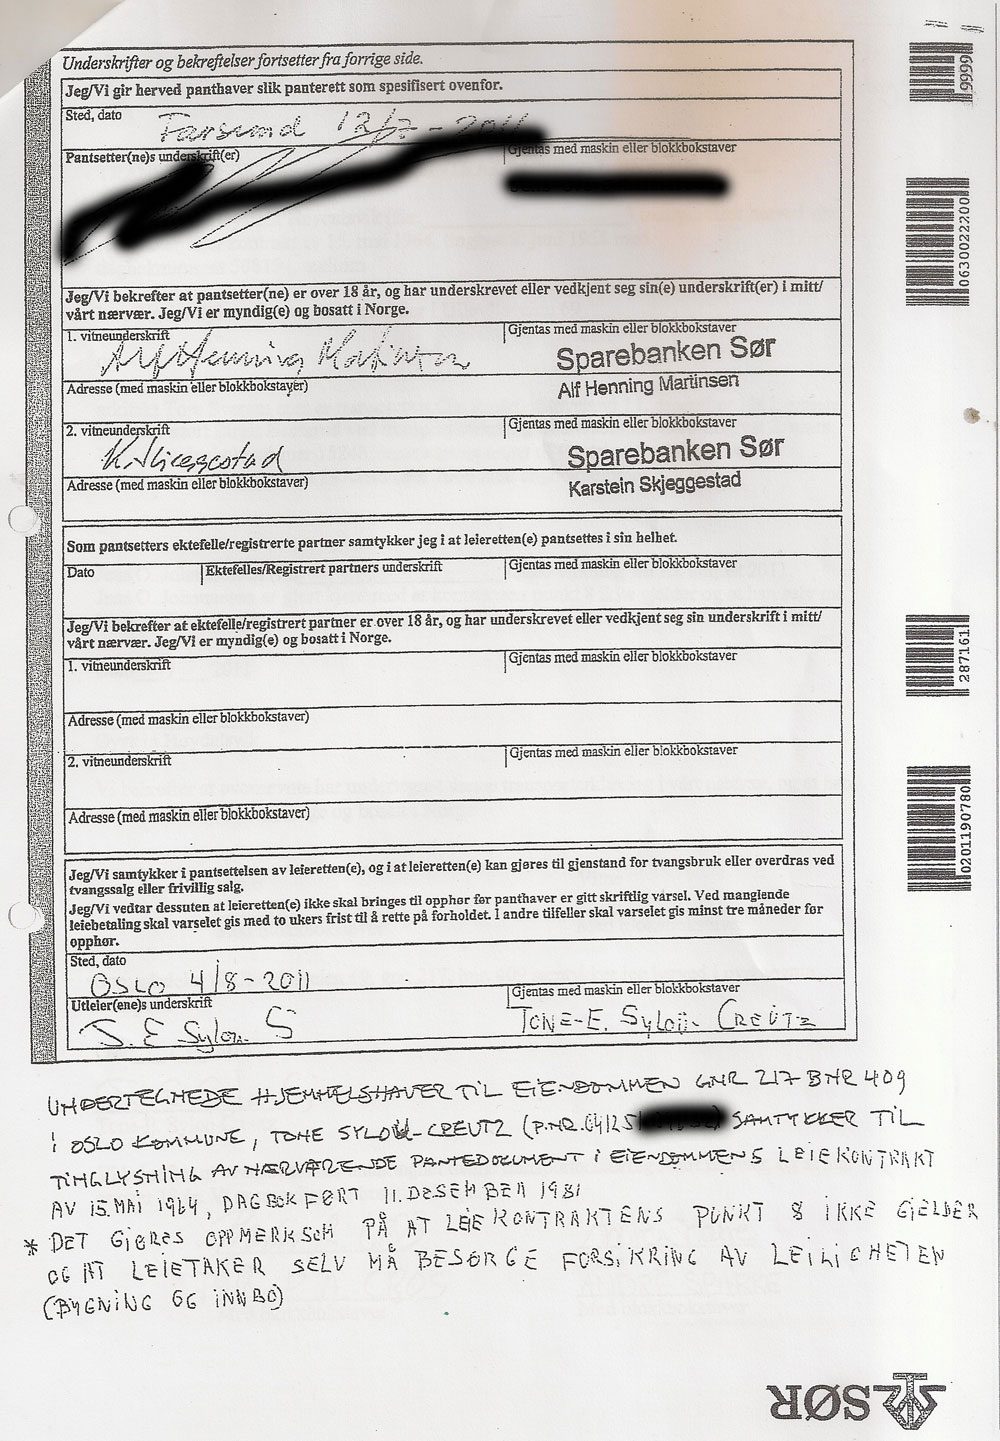 Underskrifter og bekreftelser fortsetter fra forrige side.
Jeg/Vi gir herved panthaver slik panterett som spesifisert ovenfor.
Sted, dato
Farsund 12/7-2011
Pantsetter(ne)s underskrift(er)
Gjentas med maskin eller blokkbokstaver
Jeg/Vi bekrefter at pantsetter(ne) er over 18 år, og har underskrevet eller vedkjent seg sin(e) underskrift(er) i mitt/
vårt nærvær. Jeg/Vi er myndig(e) og bosatt i Norge.
1. vitneunderskrift
Gjentas med maskin eller blokkbokstaver
Alf Henning Martinsen
Sparebanken Sør
Adresse (med maskin eller blokkbokstaver)
Alf Henning Martinsen
2. vitneunderskrift
Gjentas med maskin eller blokkbokstaver
K. Skjeggestad
Sparebanken Sør
Adresse (med maskin eller blokkbokstaver)
Karstein Skjeggestad
Som pantsetters ektefelle/registrerte partner samtykker jeg i at leieretten(e) pantsettes i sin helhet.
Dato
Ektefelles/Registrert partners underskrift
Gjentas med maskin eller blokkbokstaver
Jeg/Vi bekrefter at ektefelle/registrert partner er over 18 år, og har underskrevet eller vedkjent seg sin underskrift i mitt/
vårt nærvær. Jeg/Vi er myndig(e) og bosatt i Norge.
1. vitneunderskrift
Gjentas med maskin eller blokkbokstaver
Adresse (med maskin eller blokkbokstaver)
2. vitneunderskrift
Gjentas med maskin eller blokkbokstaver
Adresse (med maskin eller blokkbokstaver)
Jeg/Vi samtykker i pantsettelsen av leieretten(e), og i at leieretten(e) kan gjøres til gjenstand for tvangsbruk eller overdras ved
tvangssalg eller frivillig salg.
Jeg/Vi vedtar dessuten at leieretten(e) ikke skal bringes til opphør før panthaver er gitt skriftlig varsel. Ved manglende
leiebetaling skal varselet gis med to ukers frist til å rette på forholdet. I andre tilfeller skal varselet gis minst tre måneder før
opphør.
Sted, dato
OSLO 4/8-2011
Utleier(ene)s underskrift
Gjentas med maskin eller blokkbokstaver
TONE-E. SYLOW-CREUTZ
UNDERTEGNEDE HJEMMELSHAVER TIL EIENDOMMEN GNR 217 BNR 409
I OSLO KOMMUNE, TONE SYLOW-CREUTZ (P.NR. 04125 ) SAMTYKKER TIL
TINGLYSNING AV NÆRVÆRENDE PANTEDOKUMENT I EIENDOMMENS LEIEKONTRAKT
AV 15. MAI 1964, DAGBOKFØRT 11. DESEMBER 1981
* DET GJØRES OPPMERKSOM PÅ AT LEIEKONTRAKTENS PUNKT 8 IKKE GJELDER
OG AT LEIETAKER SELV MÅ BESØRGE FORSIKRING AV LEILIGHETEN
(BYGNING OG INNBO)
9999
0630022200
287161
0201190780
SØR